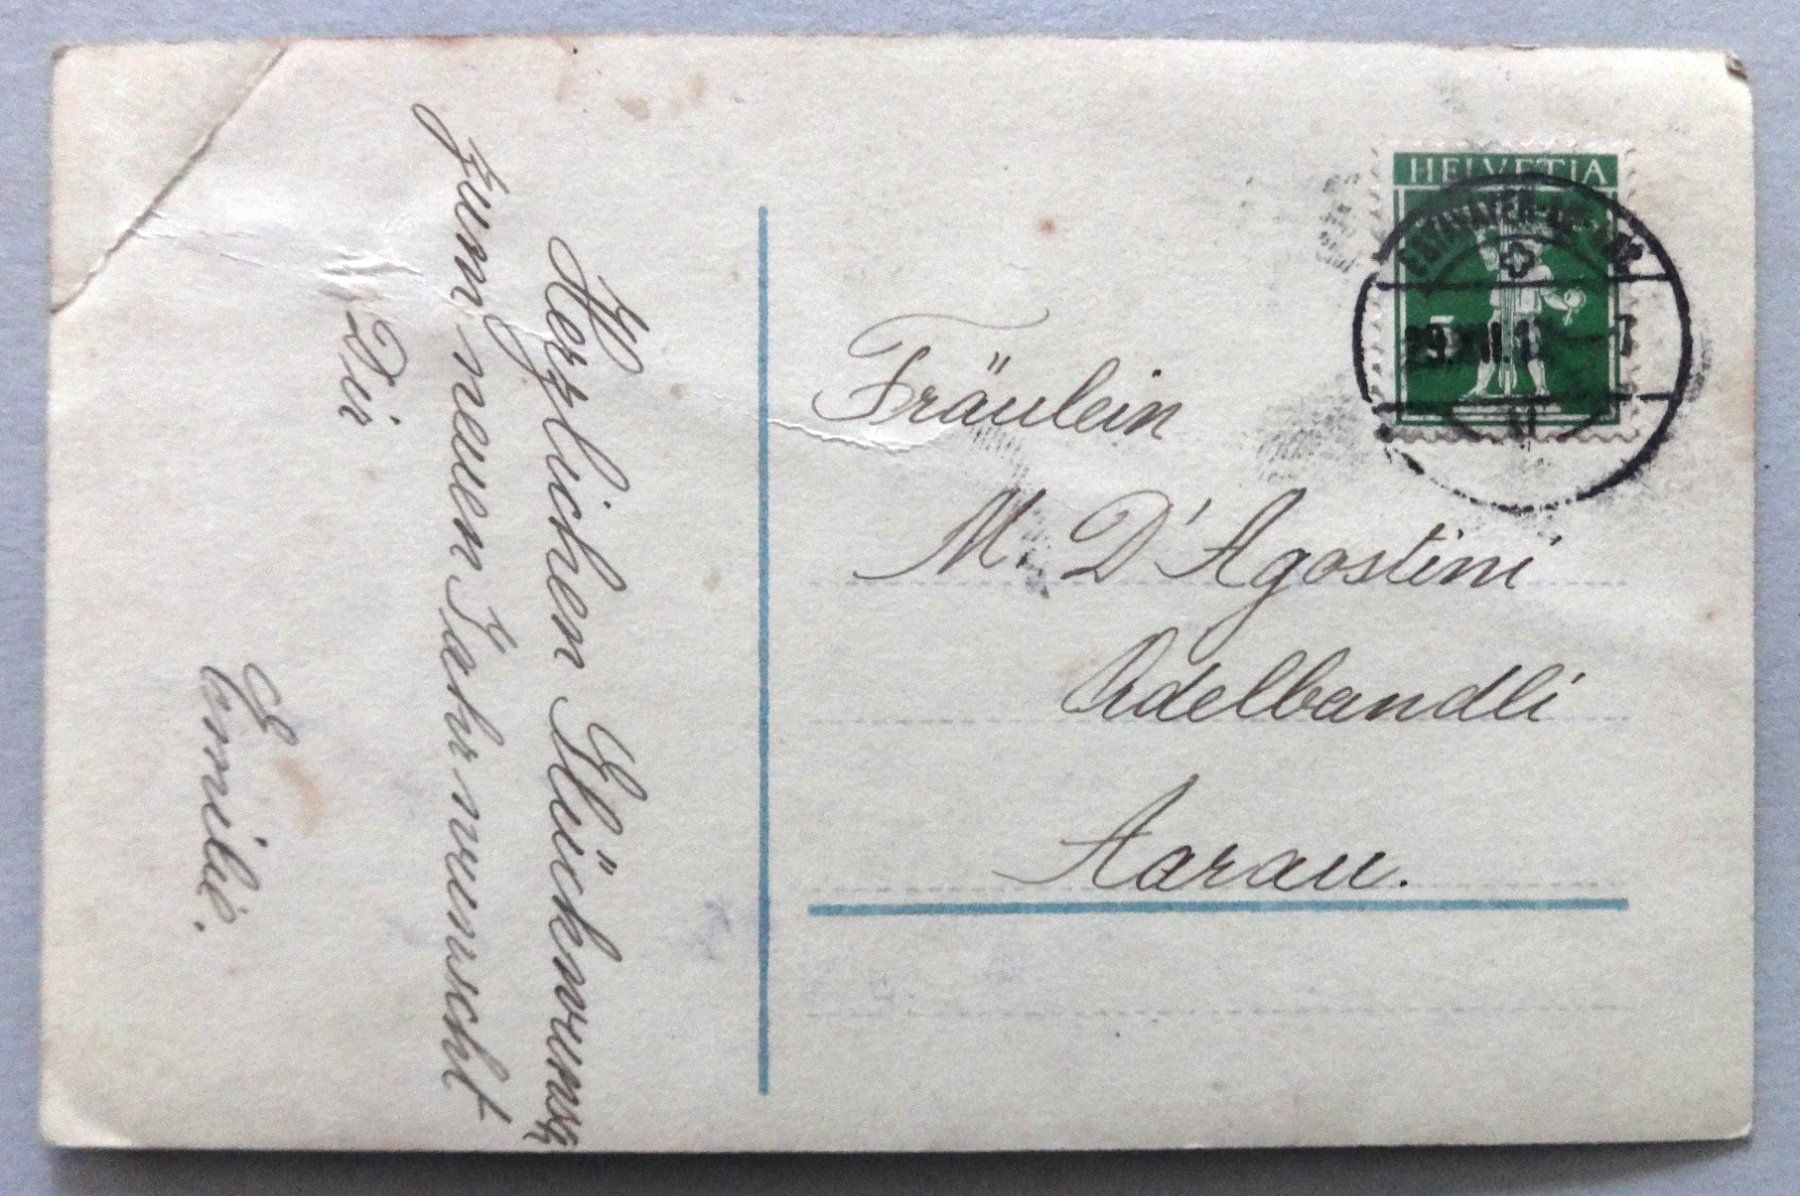 Herzlichen Glückwunsch
zum neuen Jahr wunscht
Dir
Emilie.
HELVETIA
5
Fräulein
M. D'Agostini
Adelbandli
Aarau.